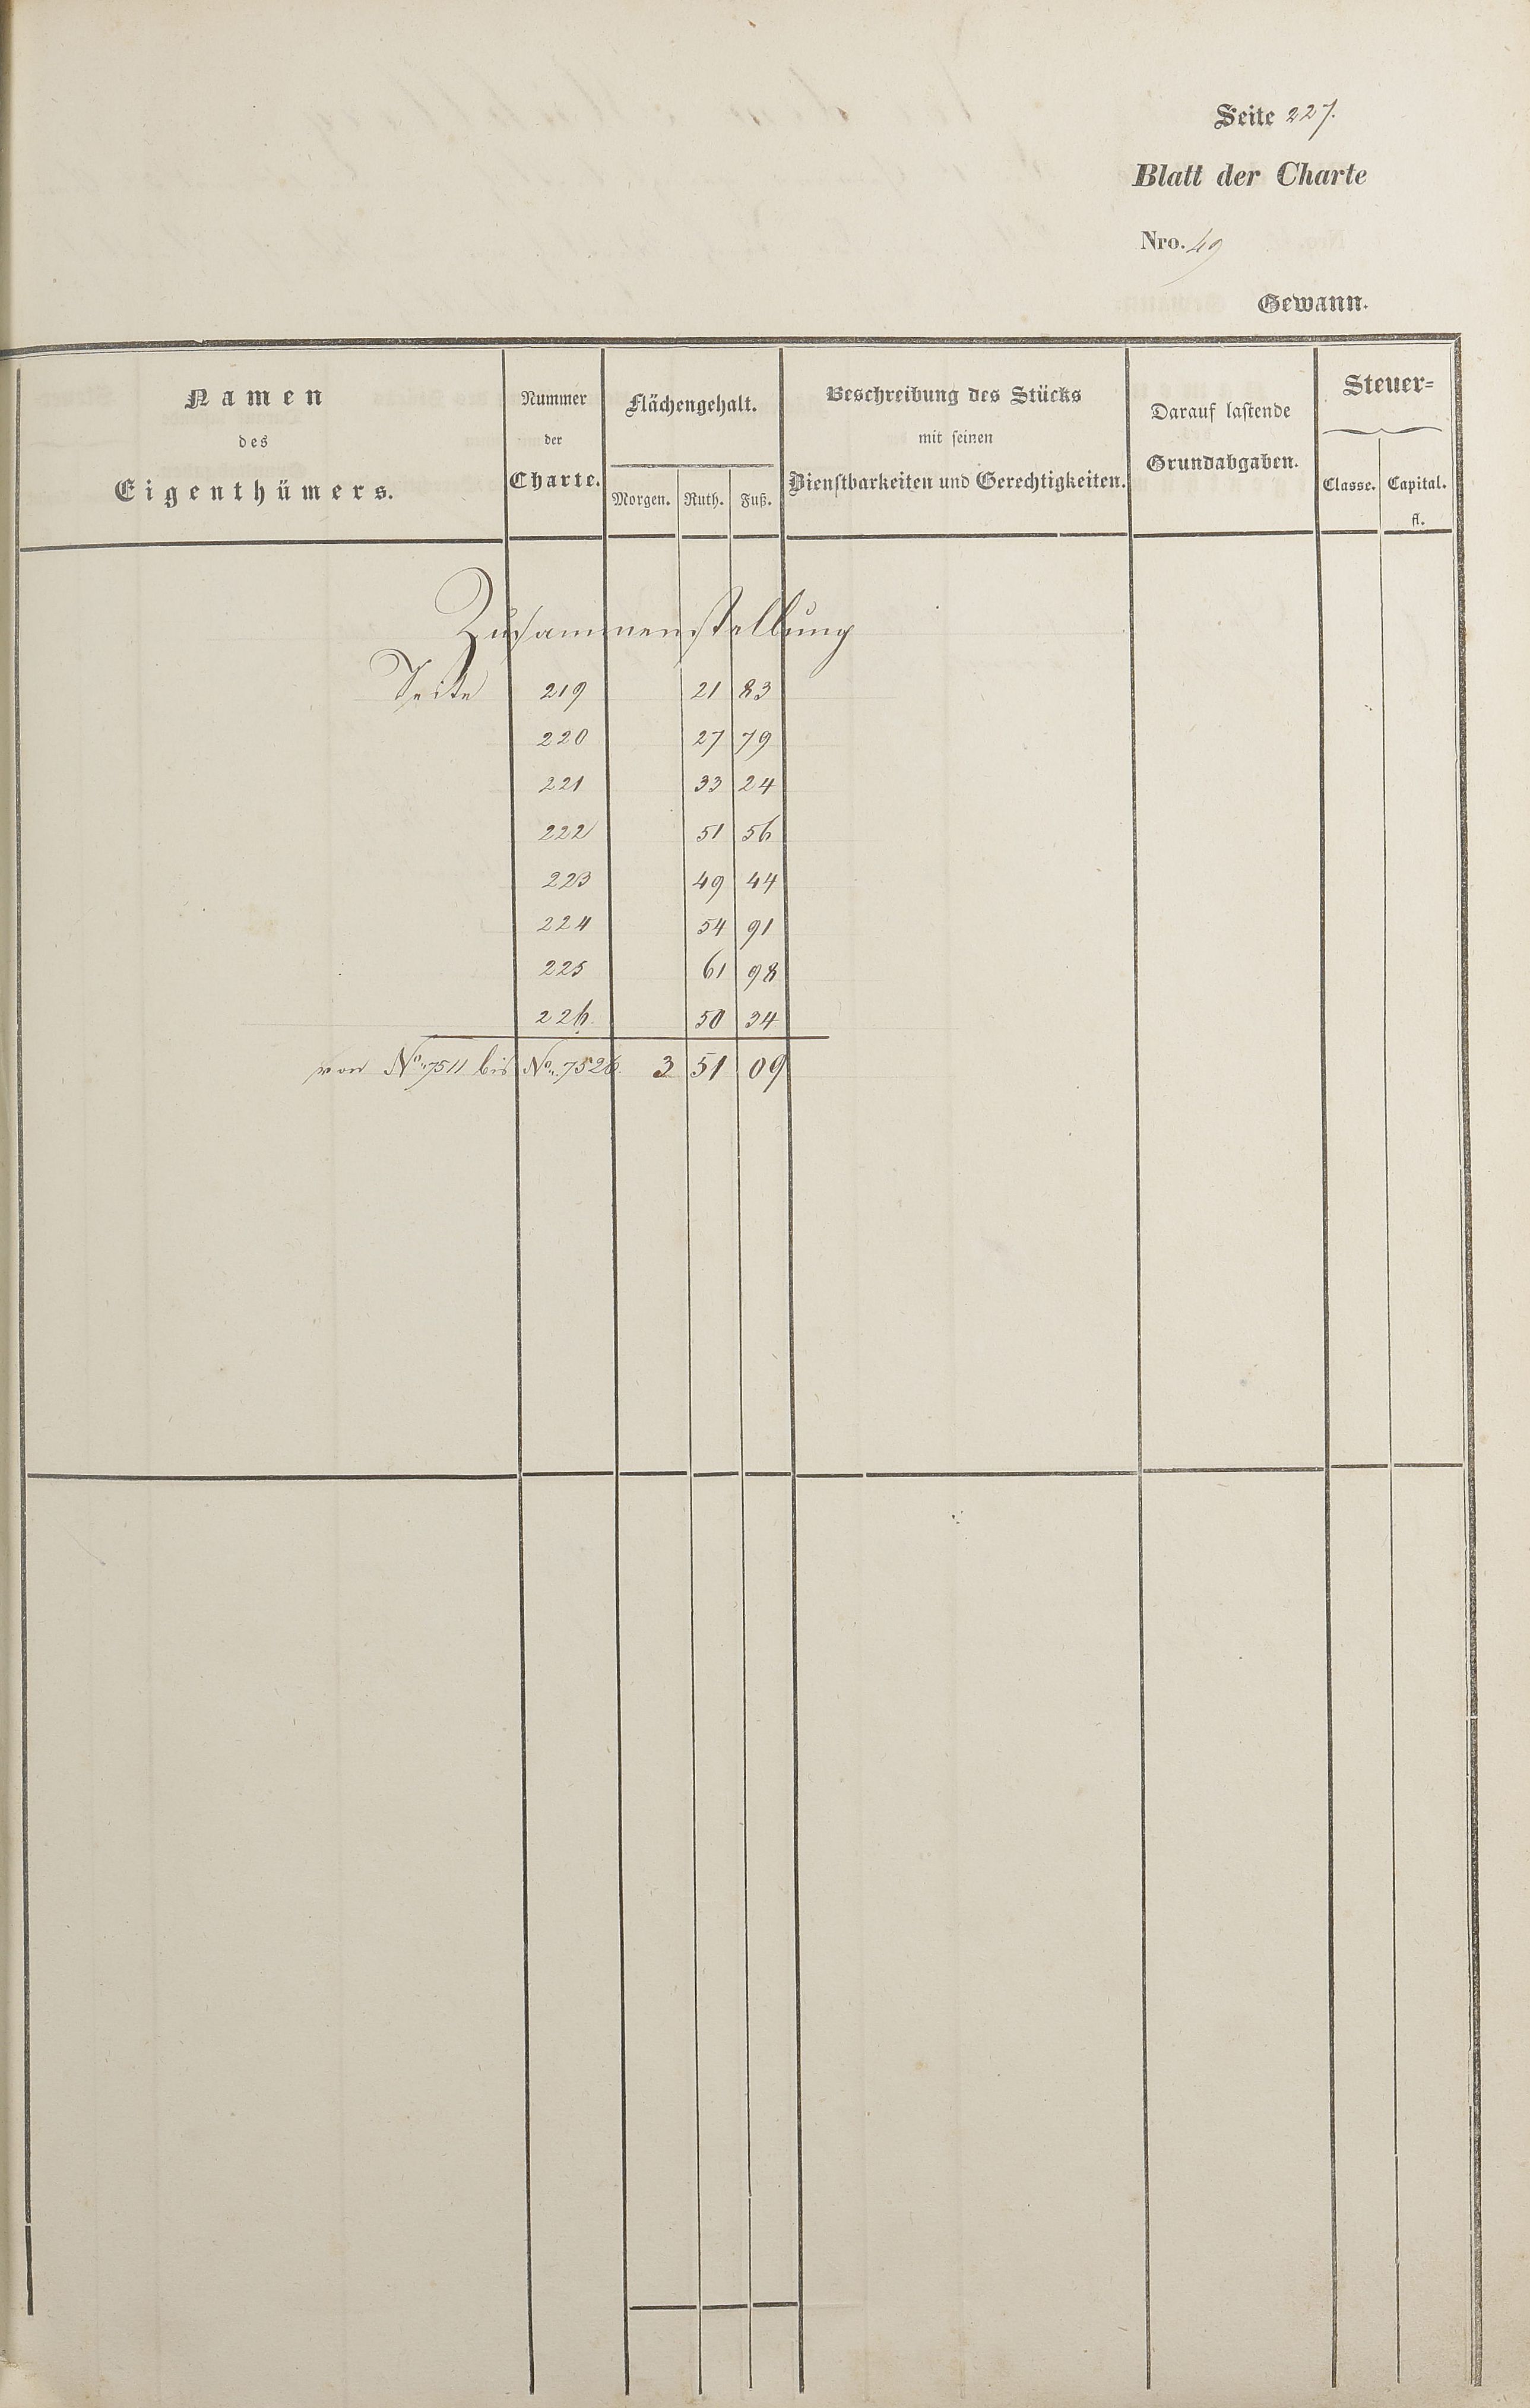 Seite 227.
Blatt der Charte
Nro. 49
Gewann.
Namen
des
Eigenthümers.
Nummer
der
Charte.
Flächengehalt.
Morgen. Ruth. Fuß.
Beschreibung des Stücks
mit seinen
Dienstbarkeiten und Gerechtigkeiten.
Darauf lastende
Grundabgaben.
Steuer=
Classe. Capital.
fl.
Zusammenstellung
Seite 219 21 83
220 27 79
221 33 24
222 51 56
223 49 44
224 54 91
225 61 98
226. 50 34
von No. 7511 bis No. 7526. 3 51 09